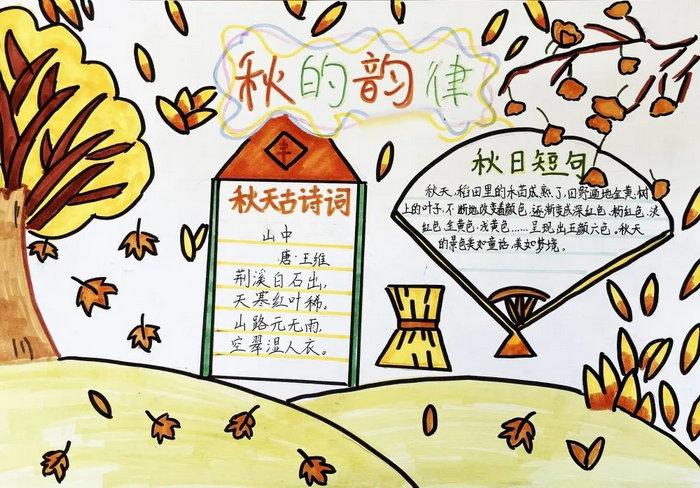 秋的韵律
丰
秋天古诗词
山中
唐·王维
荆溪白石出，
天寒红叶稀。
山路元无雨，
空翠湿人衣。
秋日短句
秋天，稻田里的禾苗成熟了，田野遍地金黄，树
上的叶子，不断地改变着颜色，逐渐变成深红色、粉红色、淡
红色、金黄色、浅黄色……呈现出五颜六色。秋天
的景色美如童话，美如梦境。